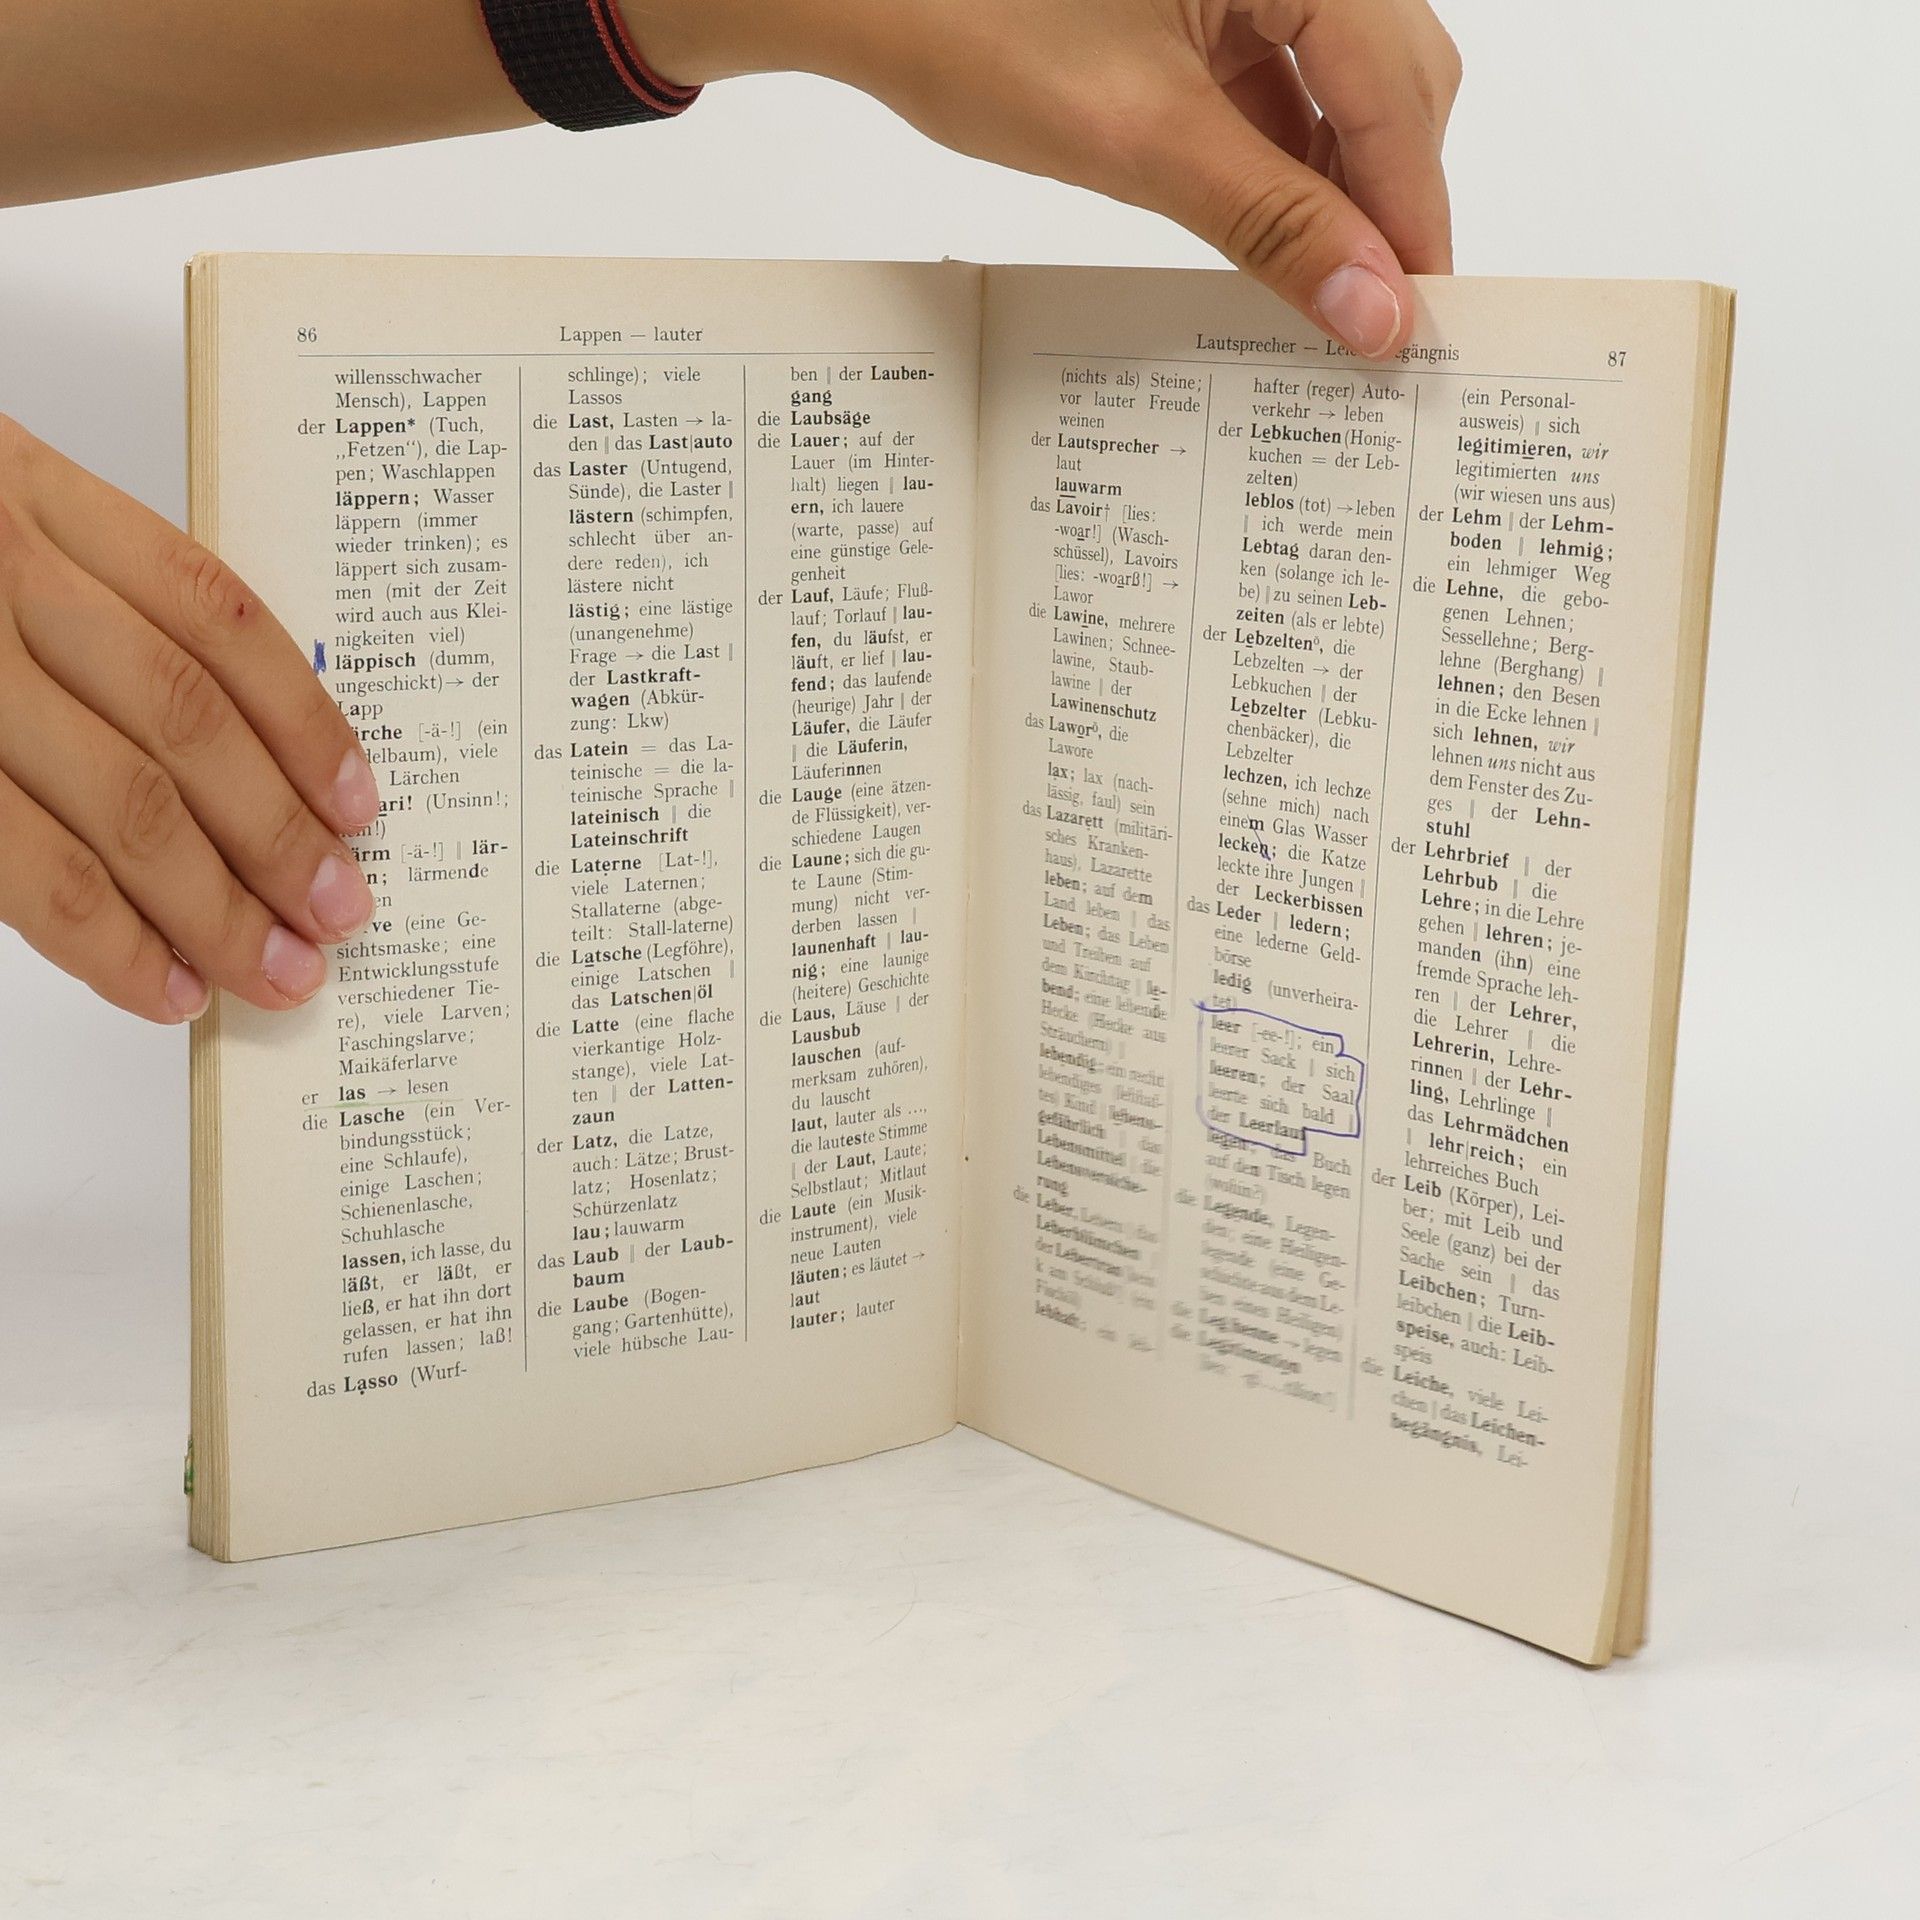 86
Lappen — lauter
willensschwacher
Mensch), Lappen
der Lappen* (Tuch,
„Fetzen“), die Lap-
pen; Waschlappen
läppern; Wasser
läppern (immer
wieder trinken); es
läppert sich zusam-
men (mit der Zeit
wird auch aus Klei-
nigkeiten viel)
läppisch (dumm,
ungeschickt)→ der
Lapp
[-ä-!] (ein
viele
Lärchen
(Unsinn!;
[-ä-!] ‖ lär-
lärmende
(eine Ge-
sichtsmaske; eine
Entwicklungsstufe
verschiedener Tie-
re), viele Larven;
Faschingslarve;
Maikäferlarve
er las → lesen
die Lasche (ein Ver-
bindungsstück;
eine Schlaufe),
einige Laschen;
Schienenlasche,
Schuhlasche
lassen, ich lasse, du
läßt, er läßt, er
ließ, er hat ihn dort
gelassen, er hat ihn
rufen lassen; laß!
das Lasso (Wurf-
schlinge); viele
Lassos
die Last, Lasten → la-
den ‖ das Last|auto
das Laster (Untugend,
Sünde), die Laster ‖
lästern (schimpfen,
schlecht über an-
dere reden), ich
lästere nicht
lästig; eine lästige
(unangenehme)
Frage → die Last ‖
der Lastkraft-
wagen (Abkür-
zung: Lkw)
das Latein = das La-
teinische = die la-
teinische Sprache ‖
lateinisch ‖ die
Lateinschrift
die Laterne [Lat-!],
viele Laternen;
Stallaterne (abge-
teilt: Stall-laterne)
die Latsche (Legföhre),
einige Latschen ‖
das Latschen|öl
die Latte (eine flache
vierkantige Holz-
stange), viele Lat-
ten ‖ der Latten-
zaun
der Latz, die Latze,
auch: Lätze; Brust-
latz; Hosenlatz;
Schürzenlatz
lau; lauwarm
das Laub ‖ der Laub-
baum
die Laube (Bogen-
gang; Gartenhütte),
viele hübsche Lau-
ben ‖ der Lauben-
gang
die Laubsäge
die Lauer; auf der
Lauer (im Hinter-
halt) liegen ‖ lau-
ern, ich lauere
(warte, passe) auf
eine günstige Gele-
genheit
der Lauf, Läufe; Fluß-
lauf; Torlauf ‖ lau-
fen, du läufst, er
läuft, er lief ‖ lau-
fend; das laufende
(heurige) Jahr ‖ der
Läufer, die Läufer
‖ die Läuferin,
Läuferinnen
die Lauge (eine ätzen-
de Flüssigkeit), ver-
schiedene Laugen
die Laune; sich die gu-
te Laune (Stim-
mung) nicht ver-
derben lassen ‖
launenhaft ‖ lau-
nig; eine launige
(heitere) Geschichte
die Laus, Läuse ‖ der
Lausbub
lauschen (auf-
merksam zuhören),
du lauscht
laut, lauter als ...,
die lauteste Stimme
‖ der Laut, Laute;
Selbstlaut; Mitlaut
die Laute (ein Musik-
instrument), viele
neue Lauten
läuten; es läutet →
laut
lauter; lauter
Lautsprecher —
87
(nichts als) Steine;
vor lauter Freude
weinen
der Lautsprecher →
laut
lauwarm
das Lavoir† [lies:
-woar!] (Wasch-
schüssel), Lavoirs
[lies: -woarß!] →
Lawor
die Lawine, mehrere
Lawinen; Schnee-
lawine, Staub-
lawine ‖ der
Lawinenschutz
das Laworö, die
Lawore
lax; lax (nach-
lässig, faul) sein
das Lazarett (militäri-
sches Kranken-
haus), Lazarette
leben; auf dem
Land leben ‖ das
Leben; das Leben
und Treiben auf
dem Kirchtag ‖ le-
bend; eine lebende
Hecke (Hecke aus
Sträuchern) ‖
lebendig; ein recht
lebendiges (lebhaf-
tes) Kind ‖ lebens-
gefährlich ‖ das
Lebensmittel ‖ die
Lebensversiche-
rung
die Leber, Lebern ‖ das
Leberblümchen
der Lebertran
lebhaft; ein leb-
hafter (reger) Auto-
verkehr → leben
der Lebkuchen (Honig-
kuchen = der Leb-
zelten)
leblos (tot) →leben
‖ ich werde mein
Lebtag daran den-
ken (solange ich le-
be) ‖ zu seinen Leb-
zeiten (als er lebte)
der Lebzeltenö, die
Lebzelten → der
Lebkuchen ‖ der
Lebzelter (Lebku-
chenbäcker), die
Lebzelter
lechzen, ich lechze
(sehne mich) nach
einem Glas Wasser
lecken; die Katze
leckte ihre Jungen ‖
der Leckerbissen
das Leder ‖ ledern;
eine lederne Geld-
börse
ledig (unverheira-
tet)
leer [-ee-!]; ein
leerer Sack ‖ sich
leeren; der Saal
leerte sich bald ‖
der Leerlauf
legen; das Buch
auf den Tisch legen
(wohin?)
die Legende, Legen-
den; eine Heiligen-
legende (eine Ge-
schichte aus dem Le-
ben eines Heiligen)
die Leghenne → legen
die Legitimation
(ein Personal-
ausweis) ‖ sich
legitimieren, wir
legitimierten uns
(wir wiesen uns aus)
der Lehm ‖ der Lehm-
boden ‖ lehmig;
ein lehmiger Weg
die Lehne, die gebo-
genen Lehnen;
Sessellehne; Berg-
lehne (Berghang) ‖
lehnen; den Besen
in die Ecke lehnen ‖
sich lehnen, wir
lehnen uns nicht aus
dem Fenster des Zu-
ges ‖ der Lehn-
stuhl
der Lehrbrief ‖ der
Lehrbub ‖ die
Lehre; in die Lehre
gehen ‖ lehren; je-
manden (ihn) eine
fremde Sprache leh-
ren ‖ der Lehrer,
die Lehrer ‖ die
Lehrerin, Lehre-
rinnen ‖ der Lehr-
ling, Lehrlinge ‖
das Lehrmädchen
‖ lehr|reich; ein
lehrreiches Buch
der Leib (Körper), Lei-
ber; mit Leib und
Seele (ganz) bei der
Sache sein ‖ das
Leibchen; Turn-
leibchen ‖ die Leib-
speise, auch: Leib-
speis
die Leiche, viele Lei-
chen ‖ das Leichen-
begängnis, Lei-